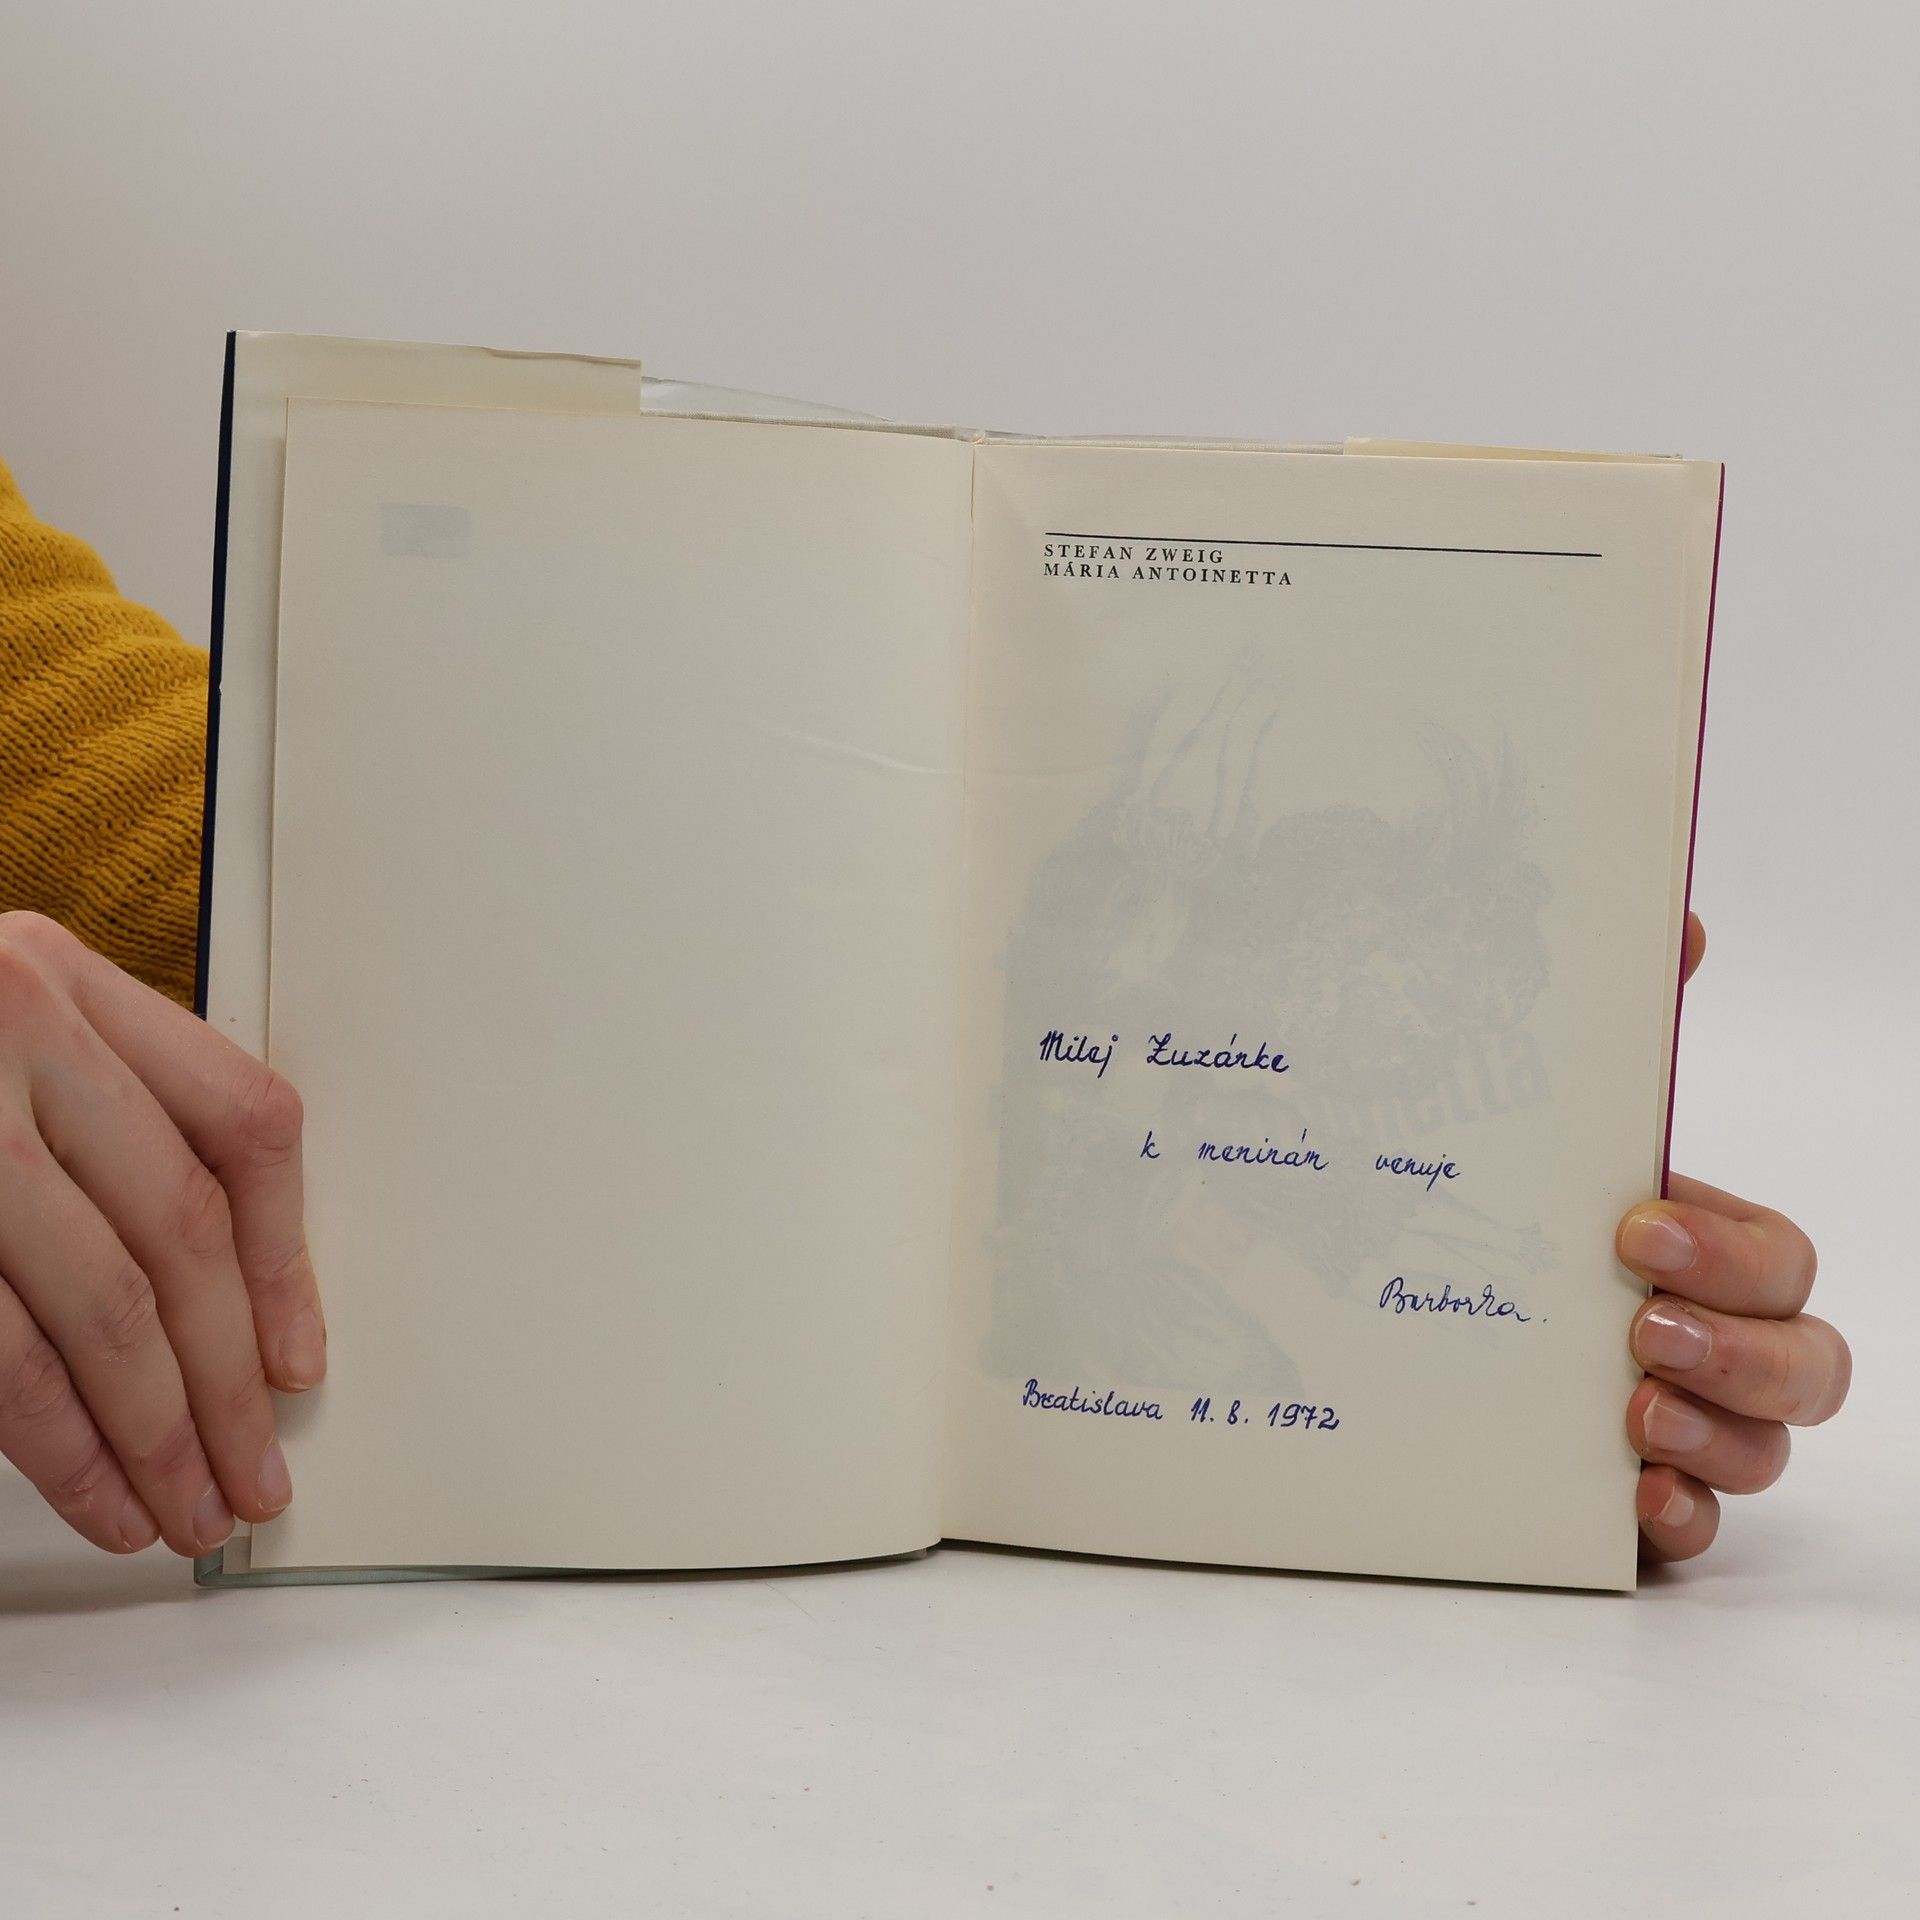 STEFAN ZWEIG
MÁRIA ANTOINETTA
Milej Zuzánke
k meninám venuje
Barborka.
Bratislava 11. 8. 1972